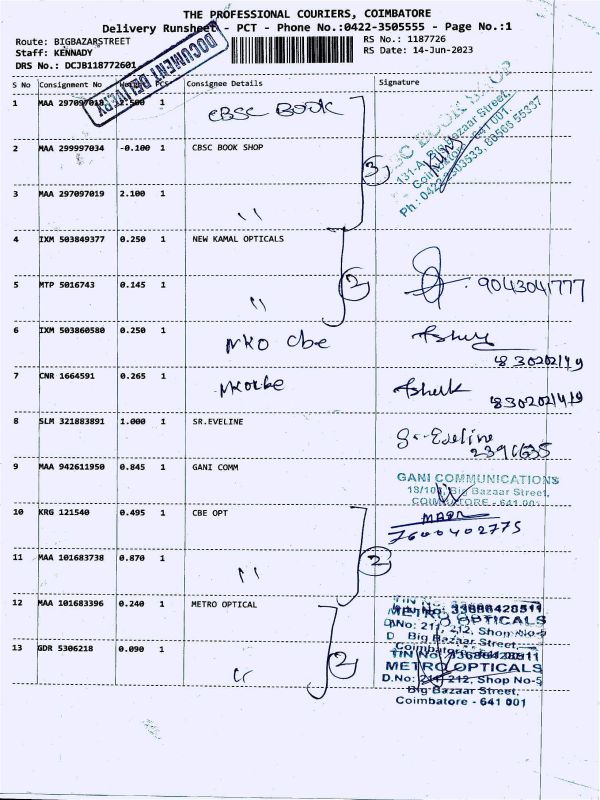 THE PROFESSIONAL COURIERS, COIMBATORE
Delivery Runsheet - PCT - Phone No.:0422-3505555 - Page No.:1
Route: BIGBAZARSTREET
Staff: KENNADY
DRS No.: DCJB118772601
RS No.: 1187726
RS Date: 14-Jun-2023
DOCUMENT DELIVERY
S No Consignment No PCS Consignee Details Signature
1 MAA 297097018 2.500 1 CBSC BOOK
2 MAA 299997034 -0.100 1 CBSC BOOK SHOP
BOOK SHOP
131-A, Big Bazaar Street,
Coimbatore - 641 001.
3 MAA 297097019 2.100 1 ''
3
4 IXM 503849377 0.250 1 NEW KAMAL OPTICALS
5 MTP 5016743 0.145 1 '' 2 9043041777
6 IXM 503860580 0.250 1 NKO Cbe
7 CNR 1664591 0.265 1
8 SLM 321883891 1.000 1 SR.EVELINE
Sr. Eveline
9 MAA 942611950 0.845 1 GANI COMM
GANI COMMUNICATIONS
Big Bazaar Street,
COIMBATORE - 641 001
10 KRG 121540 0.495 1 CBE OPT
7600402775
11 MAA 101683738 0.870 1 '' 2
12 MAA 101683396 0.240 1 METRO OPTICAL
METRO OPTICALS
D.No: 211, 212, Shop No-5
Big Bazaar Street,
13 GDR 5306218 0.090 1 2
METRO OPTICALS
D.No: 211, 212, Shop No-5
Big Bazaar Street,
Coimbatore - 641 001